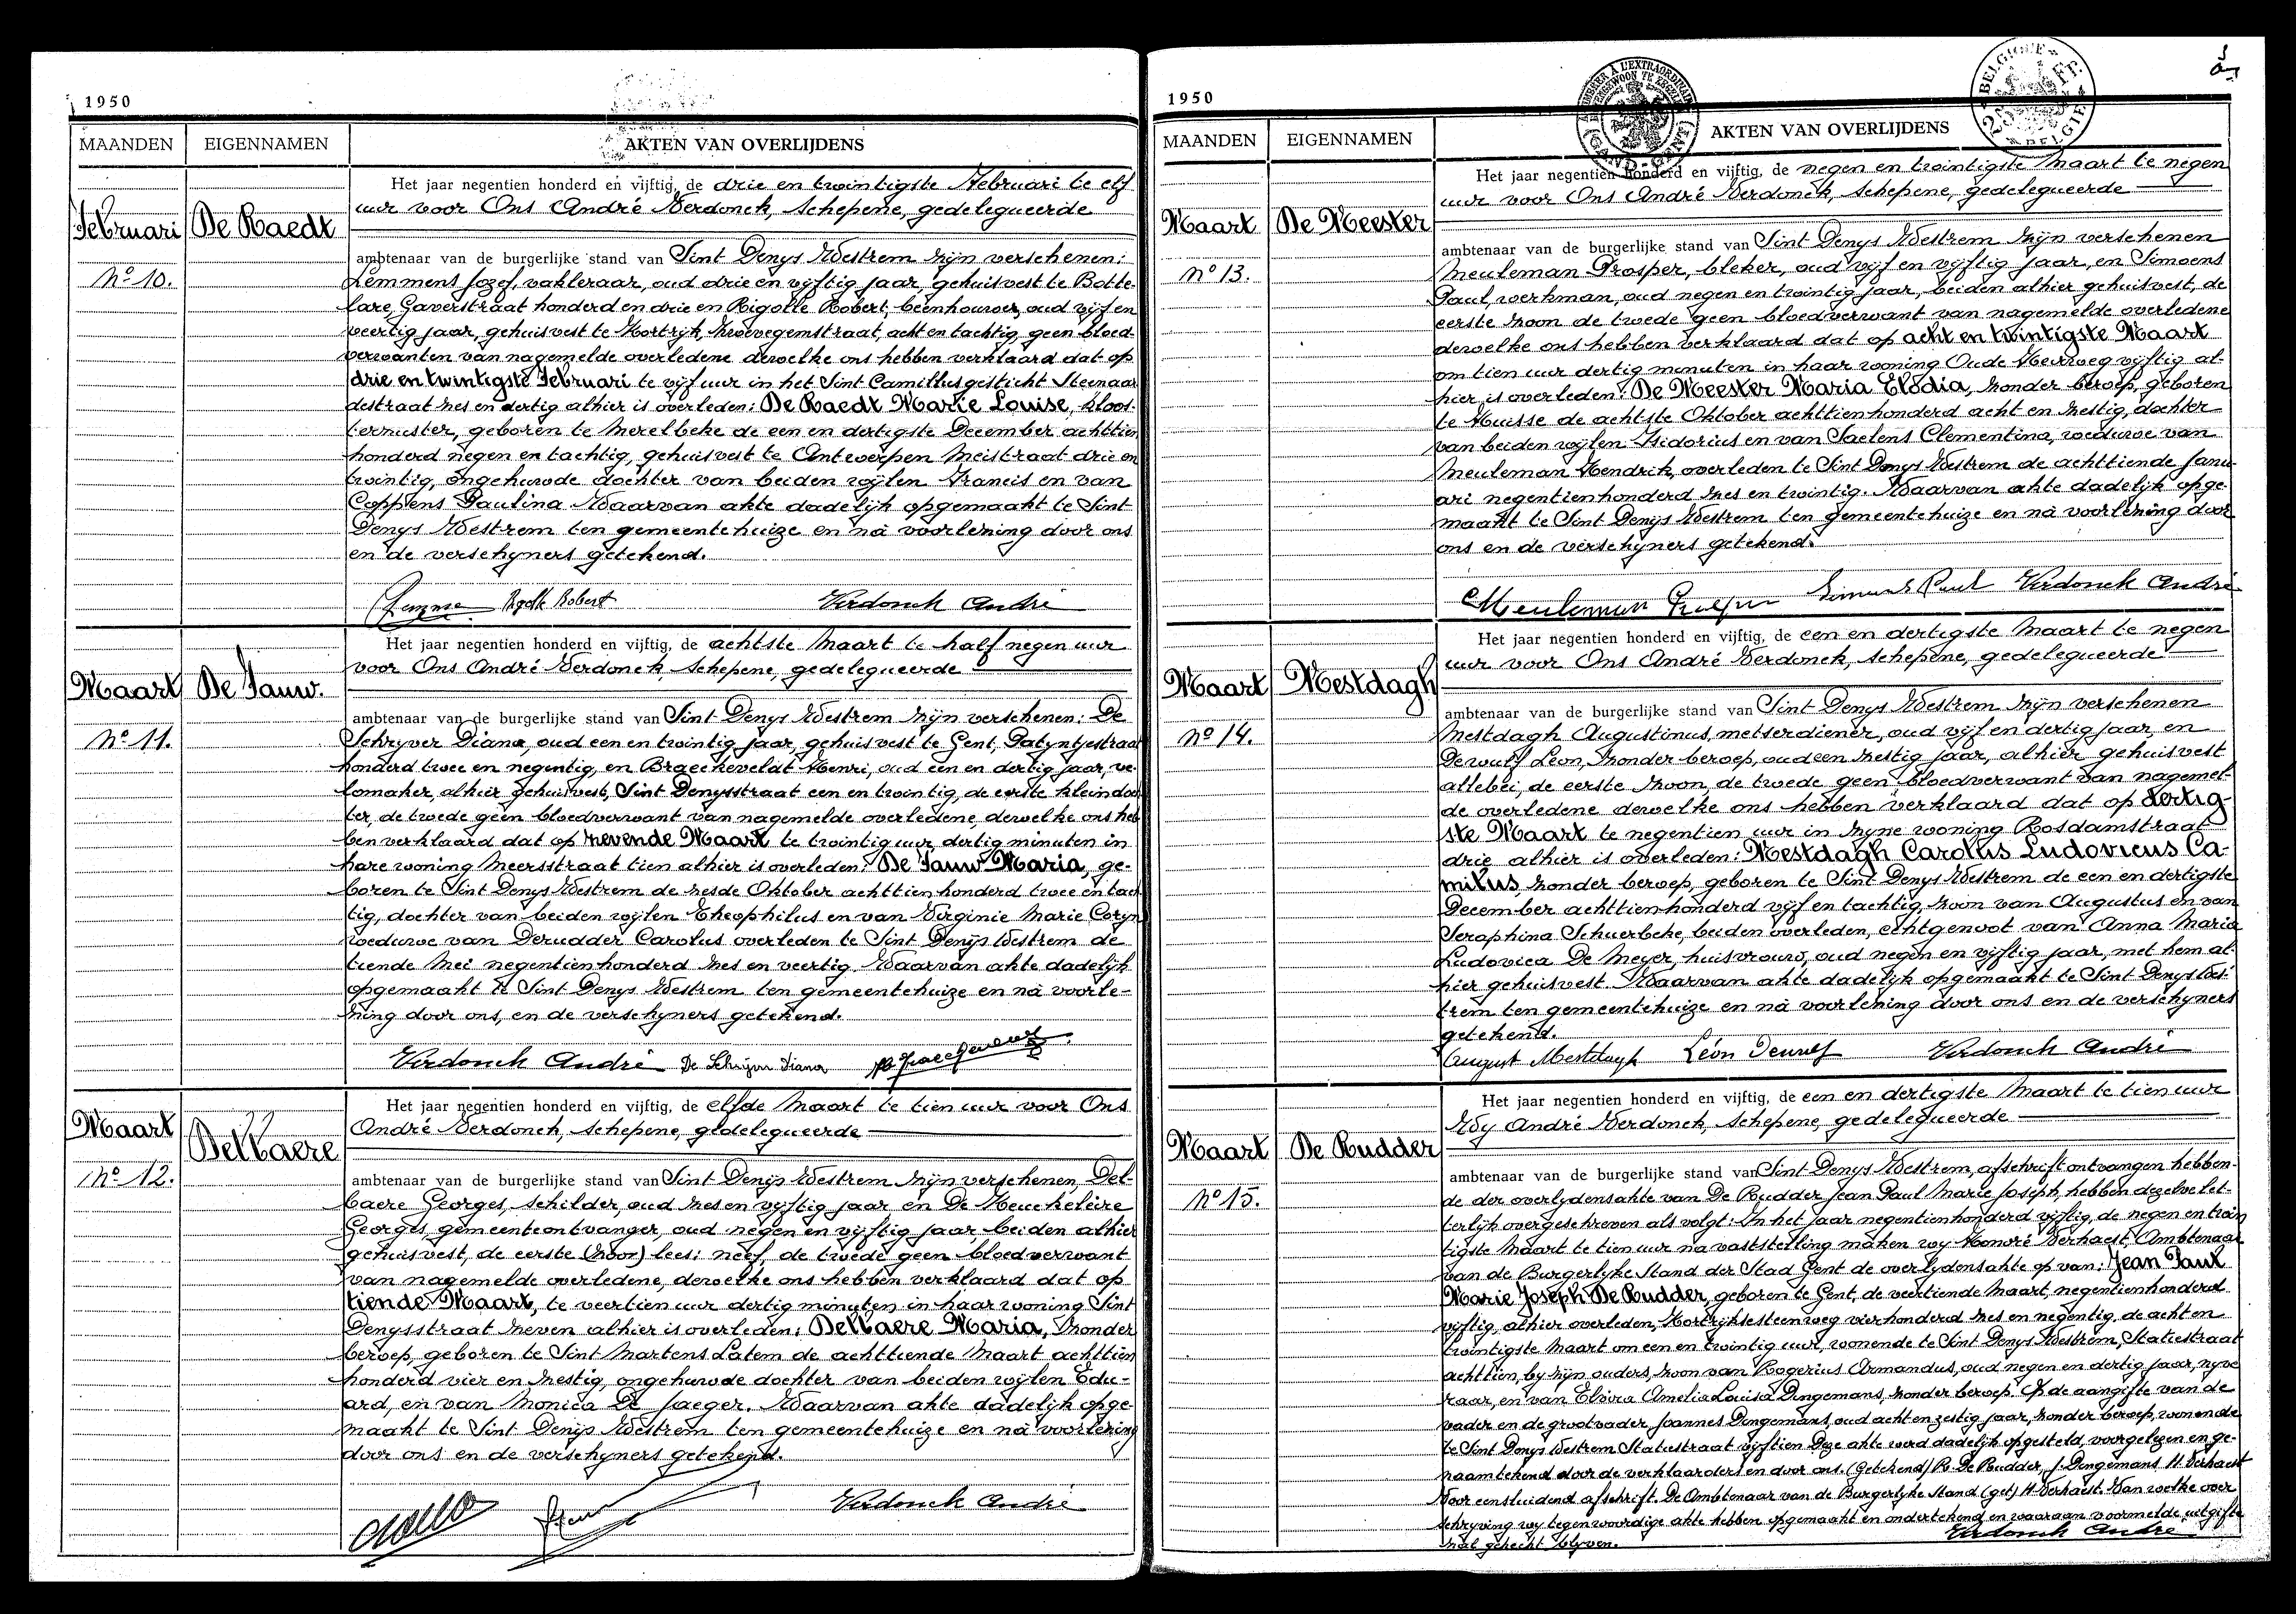 1950
MAANDEN
EIGENNAMEN
AKTEN VAN OVERLIJDENS
Februari
De Raedt
No 10.
Het jaar negentien honderd en vijftig, de drie en twintigste Februari te elf
uur voor Ons André Verdonck, Schepene, gedelegueerde
ambtenaar van de burgerlijke stand van Sint Denys Westrem zijn verschenen:
Lemmens Jozef, vakleraar, oud drie en vijftig jaar, gehuisvest te Botte-
lare, Gaverstraat honderd en drie en Rigolle Robert, beenhouwer, oud vijf en
veertig jaar, gehuisvest te Kortrijk, Zwevegemstraat, acht en tachtig, geen bloed-
verwanten van nagemelde overledene dewelke ons hebben verklaard dat op
drie en twintigste Februari te vijf uur in het Sint Camillusgesticht Steenaar-
destraat zes en dertig alhier is overleden: De Raedt Marie Louise, kloos-
terzuster, geboren te Merelbeke de een en dertigste December achttien
honderd negen en tachtig, gehuisvest te Antwerpen Meistraat drie en
twintig, ongehuwde dochter van beiden wijlen Francis en van
Coppens Paulina Waarvan akte dadelijk opgemaakt te Sint
Denys Westrem ten gemeentehuize en nà voorlezing door ons
en de verschyners getekend.
Rigolle Robert Verdonck André
Maart
De Pauw.
No 11.
Het jaar negentien honderd en vijftig, de achtste Maart te half negen uur
voor Ons André Verdonck, Schepene, gedelegueerde
ambtenaar van de burgerlijke stand van Sint Denys Westrem zijn verschenen: De
Schryver Diana, oud een en twintig jaar, gehuisvest te Gent, Patyntjestraat
honderd twee en negentig, en Braeckeveldt Henri, oud een en dertig jaar, ve-
lomaker, alhier gehuisvest, Sint Denysstraat een en twintig, de eerste kleindoch
ter, de twede geen bloedverwant van nagemelde overledene, dewelke ons heb
ben verklaard dat op zevende Maart te twintig uur dertig minuten in
hare woning Meersstraat tien alhier is overleden: De Pauw Maria, ge-
boren te Sint Denys Westrem de zesde Oktober achttien honderd twee en tach
tig, dochter van beiden wijlen Theophilus en van Virginie Marie Coryn
weduwe van Derudder Carolus overleden te Sint Denijs Westrem de
tiende Mei negentienhonderd zes en veertig. Waarvan akte dadelijk
opgemaakt te Sint Denys Westrem ten gemeentehuize en nà voorle-
zing door ons, en de verschyners getekend.
Verdonck André De Schrijver Diana
Maart
Delbaere
No 12.
Het jaar negentien honderd en vijftig, de elfde Maart te tien uur voor Ons
André Verdonck, Schepene, gedelegueerde
ambtenaar van de burgerlijke stand van Sint Denijs Westrem zijn verschenen, Del-
baere Georges, schilder, oud zes en vijftig jaar en De Keuckeleire
Georges, gemeenteontvanger, oud negen en vijftig jaar, beiden alhier
gehuisvest, de eerste (zoon) lees: neef, de twede geen bloedverwant
van nagemelde overledene, dewelke ons hebben verklaard dat op
tiende Maart, te veertien uur dertig minuten in haar woning Sint
Denysstraat zeven alhier is overleden: Delbaere Maria, zonder
beroep, geboren te Sint Martens Latem de achttiende Maart achttien
honderd vier en zestig, ongehuwde dochter van beiden wijlen Edu-
ard, en van Monica De Jaeger. Waarvan akte dadelijk opge-
maakt te Sint Denijs Westrem ten gemeentehuize en nà voorlezing
door ons en de verschyners getekend.
Verdonck André
1950
MAANDEN
EIGENNAMEN
AKTEN VAN OVERLIJDENS
BELGIQUE
BELGIË
GAND-GENT
Maart
De Meester
No 13.
Het jaar negentien honderd en vijftig, de negen en twintigste Maart te negen
uur voor Ons André Verdonck, Schepene, gedelegueerde
ambtenaar van de burgerlijke stand van Sint Denys Westrem zijn verschenen
Meuleman Prosper, bleker, oud vijf en vijftig jaar, en Simoens
Paul, werkman, oud negen en twintig jaar, beiden alhier gehuisvest, de
eerste zoon de twede geen bloedverwant van nagemelde overledene
dewelke ons hebben verklaard dat op acht en twintigste Maart
om tien uur dertig minuten in haar woning Oude Heirweg vijftig al-
hier is overleden: De Meester Maria Elodia, zonder beroep, geboren
te Huisse de achtste Oktober achttienhonderd acht en zestig, dochter
van beiden wijlen Isidorius en van Saelens Clementina, weduwe van
Meuleman Hendrik, overleden te Sint Denys Westrem de achttiende Janu-
ari negentienhonderd zes en twintig. Waarvan akte dadelijk opge-
maakt te Sint Denijs Westrem ten gemeentehuize en nà voorlezing door
ons en de verschyners getekend.
Meuleman Prosper Simoens Paul Verdonck André
Maart
Mestdagh
No 14.
Het jaar negentien honderd en vijftig, de een en dertigste Maart te negen
uur voor Ons André Verdonck, Schepene, gedelegueerde
ambtenaar van de burgerlijke stand van Sint Denys Westrem zijn verschenen
Mestdagh Augustinus, metserdiener, oud vijf en dertig jaar, en
Dewulf Leon, zonder beroep, oud een zestig jaar, alhier gehuisvest
allebei, de eerste zoon, de twede geen bloedverwant van nagemel-
de overledene dewelke ons hebben verklaard dat op dertig-
ste Maart te negentien uur in zyne woning Rosdamstraat
drie alhier is overleden: Mestdagh Carolus Ludovicus Ca-
milus, zonder beroep, geboren te Sint Denys Westrem de een en dertigste
December achttienhonderd vijf en tachtig, zoon van Augustus en van
Seraphina Schuerbeke, beiden overleden, echtgenoot van Anna Maria
Ludovica De Meyer, huisvrouw, oud negen en vijftig jaar, met hem al-
hier gehuisvest. Waarvan akte dadelijk opgemaakt te Sint Denys Wes-
trem ten gemeentehuize en nà voorlezing door ons en de verschyners
getekend.
August Mestdagh Léon Dewulf Verdonck André
Maart
De Rudder
No 15.
Het jaar negentien honderd en vijftig, de een en dertigste Maart te tien uur
Wy André Verdonck, Schepene, gedelegueerde
ambtenaar van de burgerlijke stand van Sint Denys Westrem, afschrift ontvangen hebben-
de der overlydensakte van De Rudder Jean Paul Marie Joseph, hebben dezelve let-
terlijk overgeschreven als volgt: In het jaar negentienhonderd vijftig, de negen en twin
tigste Maart te tien uur na vaststelling maken wy Honoré Verhaest, Ambtenaar
van de Burgerlyke Stand der Stad Gent de overlydensakte op van: Jean Paul
Marie Joseph De Rudder, geboren te Gent, de veertiende Maart, negentienhonderd
vijftig, alhier overleden, Kortrijksesteenweg vierhonderd zes en negentig, de acht en
twintigste Maart om een en twintig uur, wonende te Sint Denys Westrem, Statiestraat
achttien, by zijn ouders, zoon van Rogerius Armandus, oud negen en dertig jaar, nyve
raar, en van Elvira Amelia Louisa Dingemans, zonder beroep. Op de aangifte van de
vader en de grootvader, Joannes Dingemans, oud acht en zestig jaar, zonder beroep, wonende
te Sint Denys Westrem Statiestraat vijftien Deze akte werd dadelijk opgesteld, voorgelezen en ge-
naamtekend door de verklaarders en door ons. (Getekend) R. De Rudder, J. Dingemans H. Verhaest
Voor eensluidend afschrift. De Ambtenaar van de Burgerlyke Stand (get) H. Verhaest. Van welke over
schryving wy tegenwoordige akte hebben opgemaakt en ondertekend en waaraan voormelde uitgifte
zal gehecht blyven.
Verdonck André